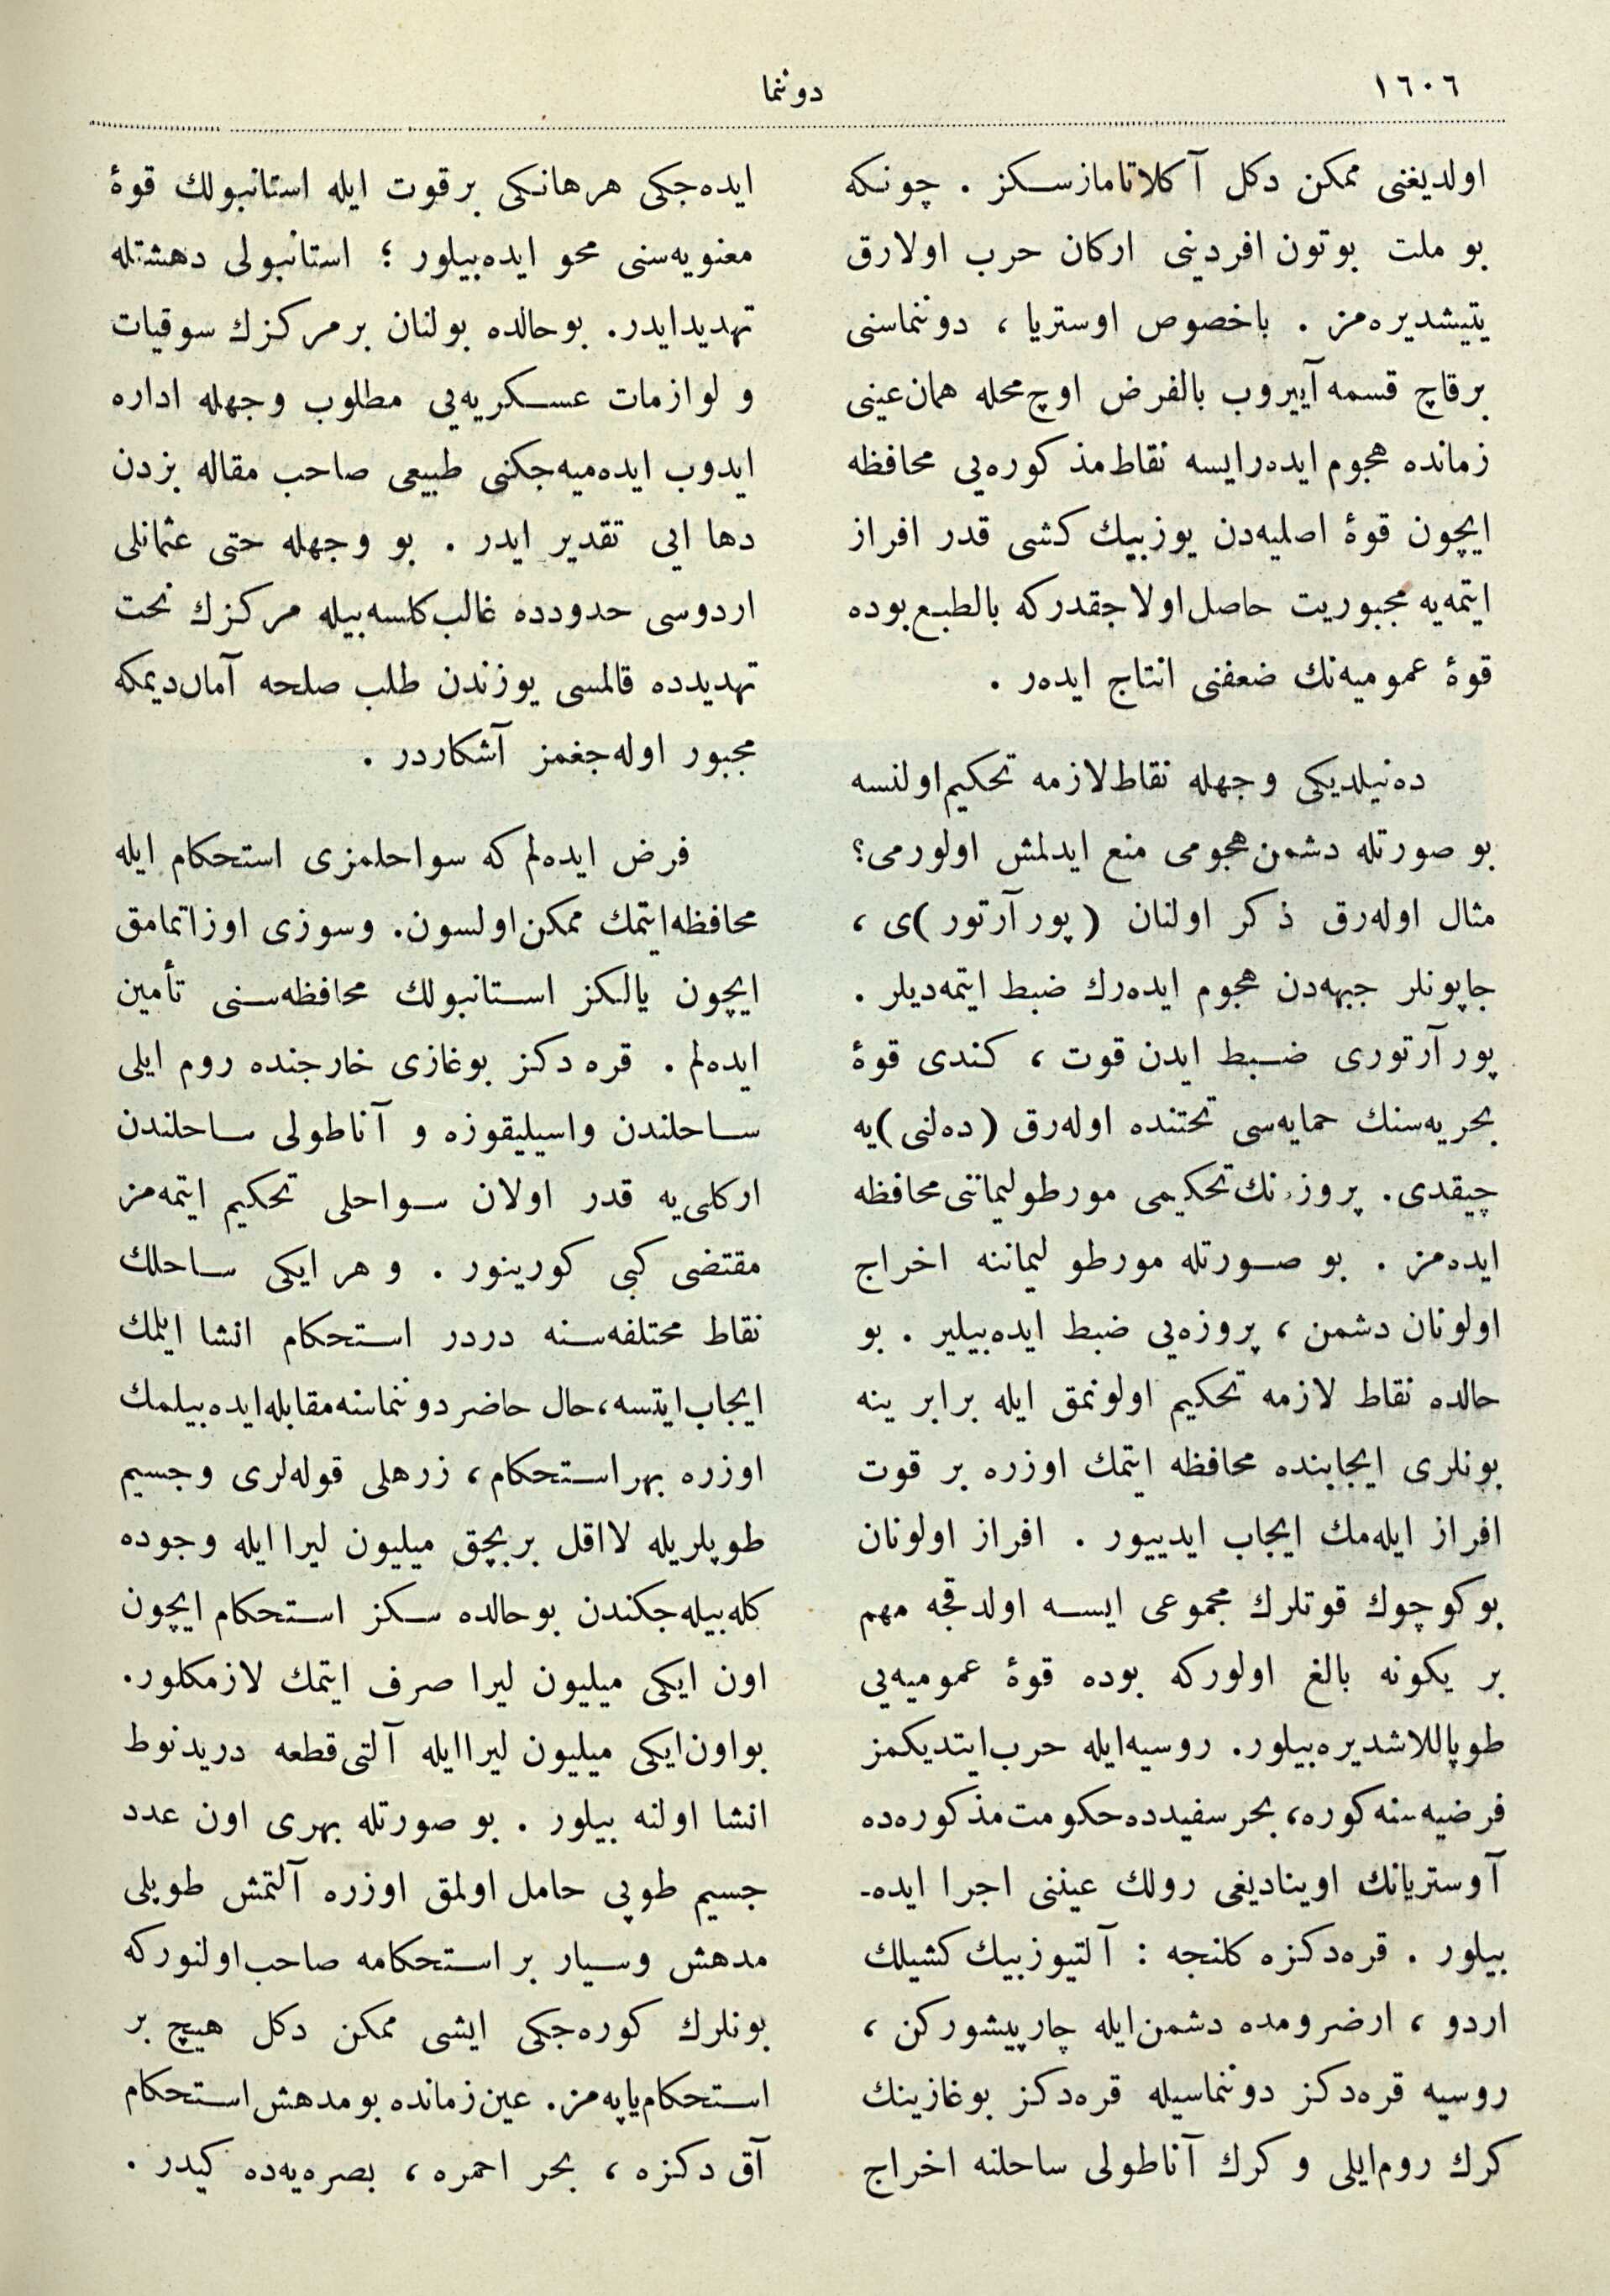 ١٦٠٦
دوننما
اولديغنى ممكن دكل آكلاتامازسكز . چونكه
بو ملت بوتون افردينى اركان حرب اولارق
يتيشديره‌مز . باخصوص اوستريا ، دوننماسنى
برقاچ قسمه آييروب بالفرض اوچ محله همان عينى
زمانده هجوم ايده‌رايسه نقاط مذكوره‌يى محافظه
ايچون قوۀ اصليه‌دن يوزبيك كشى قدر افراز
ايتمه‌يه مجبوريت حاصل اولاجقدركه بالطبع بوده
قوۀ عموميه‌نك ضعفنى انتاج ايده‌ر .
ده‌نيلديكى وجهله نقاط لازمه تحكيم اولنسه
بو صورتله دشمن هجومى منع ايدلمش اولورمى؟
مثال اوله‌رق ذكر اولنان (پور آرتور)ى ،
جاپونلر جبهه‌دن هجوم ايده‌رك ضبط ايتمه‌ديلر .
پور آرتورى ضبط ايدن قوت ، كندى قوۀ
بحريه‌سنك حمايه‌سى تحتنده اوله‌رق (ده‌لنى)يه
چيقدى. پروزه‌نك تحكيمى مورطو ليماننى محافظه
ايده‌مز . بو صورتله مورطو ليماننه اخراج
اولونان دشمن ، پروزه‌يى ضبط ايده‌بيلير . بو
حالده نقاط لازمه تحكيم اولونمق ايله برابر ينه
بونلرى ايجابنده محافظه ايتمك اوزره بر قوت
افراز ايله‌مك ايجاب ايدييور . افراز اولونان
بوكوچوك قوتلرك مجموعى ايسه اولدقجه مهم
بر يكونه بالغ اولوركه بوده قوۀ عموميه‌يى
طوپاللاشديره‌بيلور. روسيه‌ايله حرب ايتديكمز
فرضيه‌سنه كوره، بحر سفيدده حكومت مذكوره‌ده
آوستريانك اويناديغى رولك عيننى اجرا ايده‌-
بيلور . قره‌دكزه كلنجه : آلتيوزبيك كشيلك
اردو ، ارضرومده دشمن ايله چارپيشوركن ،
روسيه قره‌دكز دوننماسيله قره‌دكز بوغازينك
كرك روم‌ايلى و كرك آناطولى ساحلنه اخراج
ايده‌جكى هرهانكى برقوت ايله استانبولك قوۀ
معنويه‌سنى محو ايده‌بيلور ؛ استانبولى دهشتله
تهديدايدر. بوحالده بولنان برمركزك سوقيات
و لوازمات عسكريه‌يى مطلوب وجهله اداره
ايدوب ايده‌ميه‌جكنى طبيعى صاحب مقاله بزدن
دها ايى تقدير ايدر . بو وجهله حتى عثمانلى
اردوسى حدودده غالب كلسه‌بيله مركزك تحت
تهديدده قالمسى يوزندن طلب صلحه آمان‌ديمكه
مجبور اوله‌جغمز آشكاردر .
فرض ايده‌لم كه سواحلمزى استحكام ايله
محافظه‌ايتمك ممكن اولسون. وسوزى اوزاتمامق
ايچون يالكز استانبولك محافظه‌سنى تأمين
ايده‌لم . قره دكز بوغازى خارجنده روم ايلى
ساحلندن واسيليقوزه و آناطولى ساحلندن
اركلى‌يه قدر اولان سواحلى تحكيم ايتمه‌مز
مقتضى كبى كورينور . و هر ايكى ساحلك
نقاط مختلفه‌سنه دردر استحكام انشا ايلمك
ايجاب‌ايتسه، حال حاضر دوننماسنه مقابله‌ايده‌بيلمك
اوزره بهر استحكام، زرهلى قوله‌لرى وجسيم
طوپلريله لااقل بربچق ميليون ليرا ايله وجوده
كله‌بيله‌جكندن بوحالده سكز استحكام ايچون
اون ايكى ميليون ليرا صرف ايتمك لازمكلور.
بواون‌ايكى ميليون ليراايله آلتى قطعه دريدنوط
انشا اولنه بيلور . بو صورتله بهرى اون عدد
جسيم طوپى حامل اولمق اوزره آلتمش طوپلى
مدهش وسيار بر استحكامه صاحب اولنوركه
بونلرك كوره‌جكى ايشى ممكن دكل هيچ بر
استحكام ياپه‌مز. عين زمانده بومدهش استحكام
آق دكزه ، بحر احمره ، بصره‌يه‌ده كيدر .